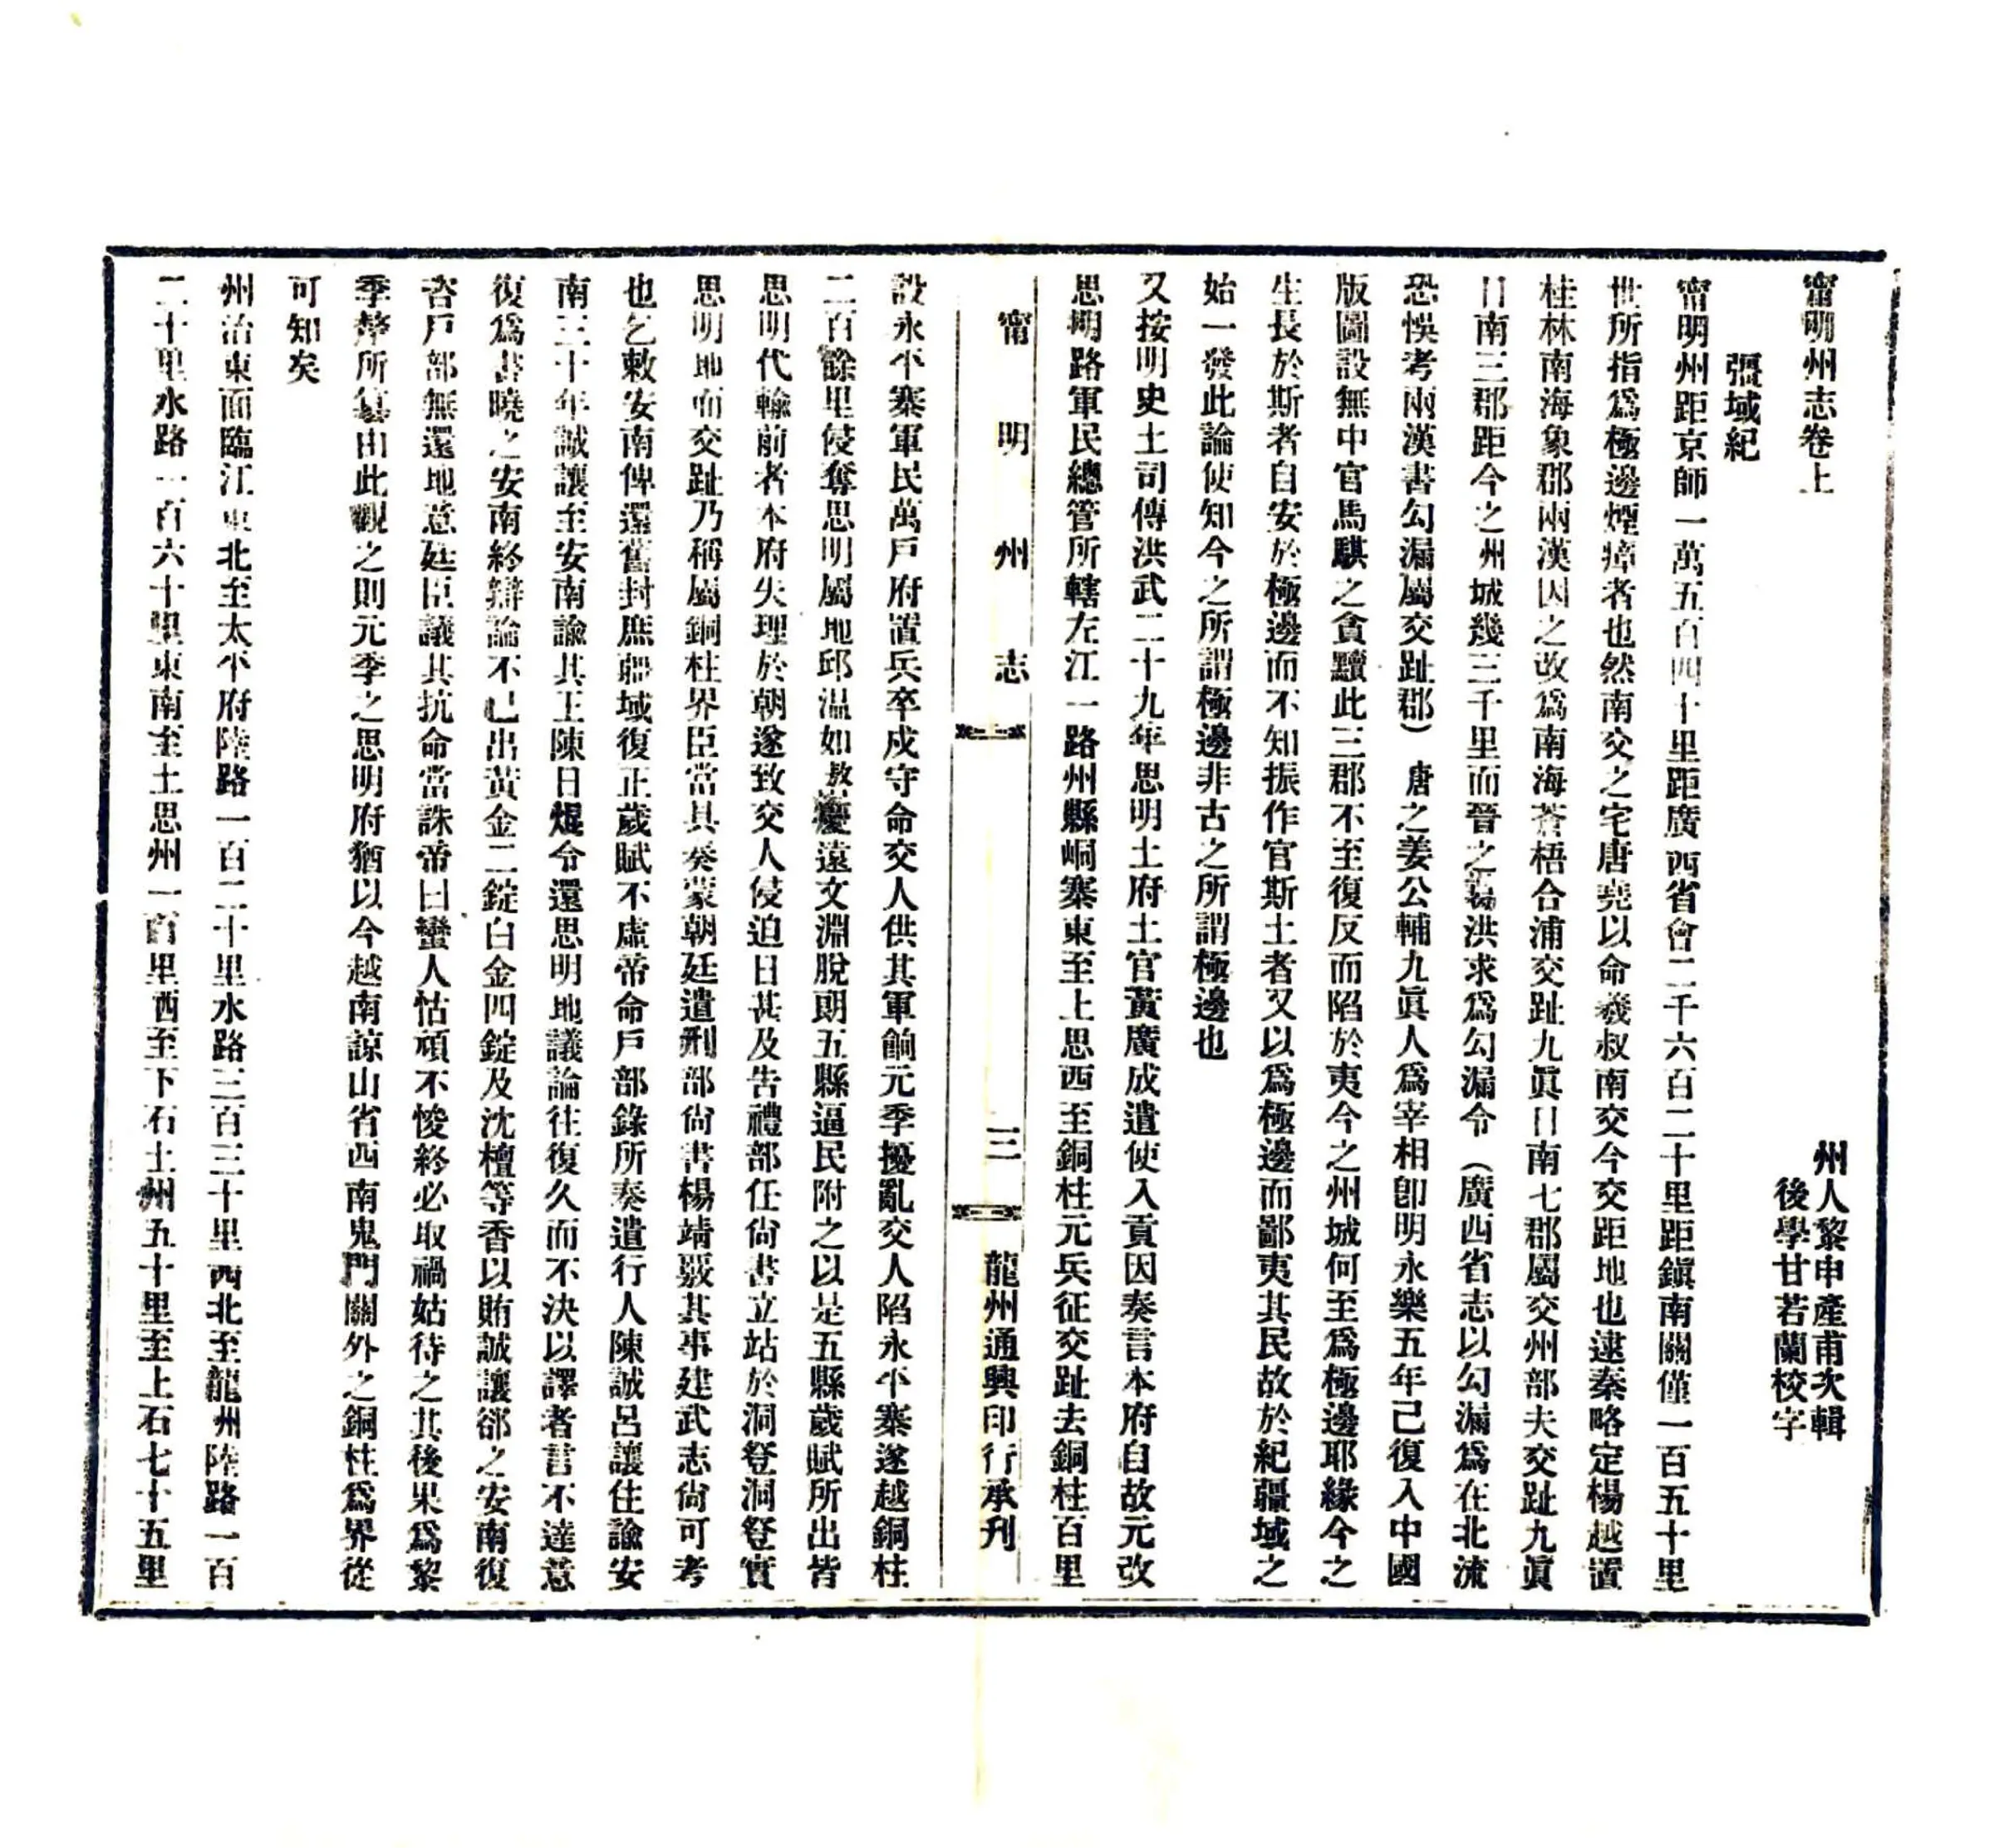 甯明州志卷上
州人黎申產甫次輯
後學甘若蘭校字
彊域紀
甯明州距京師一萬五百四十里距廣西省會二千六百二十里距鎭南關僅一百五十里
世所指爲極邊煙瘴者也然南交之宅唐堯以命羲叔南交今交距地也逮秦略定楊越置
桂林南海象郡兩漢因之改爲南海蒼梧合浦交趾九眞日南七郡屬交州部夫交趾九眞
日南三郡距今之州城幾三千里而晉之葛洪求爲勾漏令（廣西省志以勾漏爲在北流
恐悞考兩漢書勾漏屬交趾郡）唐之姜公輔九眞人爲宰相卽明永樂五年已復入中國
版圖設無中官馬騏之貪黷此三郡不至復反而陷於夷今之州城何至爲極邊耶緣今之
生長於斯者自安於極邊而不知振作官斯土者又以爲極邊而鄙夷其民故於紀疆域之
始一發此論使知今之所謂極邊非古之所謂極邊也
又按明史土司傳洪武二十九年思明土府土官黃廣成遣使入貢因奏言本府自故元改
思明路軍民總管所轄左江一路州縣峒寨東至上思西至銅柱元兵征交趾去銅柱百里
甯明州志
三
龍州通興印行承刋
設永平寨軍民萬戶府置兵卒戍守命交人供其軍餉元季擾亂交人陷永平寨遂越銅柱
二百餘里侵奪思明屬地邱溫如嶅慶遠文淵脫朗五縣逼民附之以是五縣歲賦所出皆
思明代輸前者本府失理於朝遂致交人侵迫日甚及告禮部任尙書立站於洞登洞登實
思明地而交趾乃稱屬銅柱界臣當具奏蒙朝廷遣刑部尙書楊靖覈其事建武志尙可考
也乞敕安南俾還舊封庶疆域復正歲賦不虛帝命戶部錄所奏遣行人陳誠呂讓住諭安
南三十年誠讓至安南諭其王陳日焜令還思明地議論往復久而不決以譯者言不達意
復爲書曉之安南終辯論不已出黃金二錠白金四錠及沈檀等香以賄誠讓郤之安南復
咨戶部無還地意廷臣議其抗命當誅帝曰蠻人怙頑不悛終必取禍姑待之其後果爲黎
季犛所簒由此觀之則元季之思明府猶以今越南諒山省西南鬼門關外之銅柱爲界從
可知矣
州治東面臨江東北至太平府陸路一百二十里水路三百三十里西北至龍州陸路一百
二十里水路一百六十里東南至土思州一百里西至下石土州五十里至上石七十五里